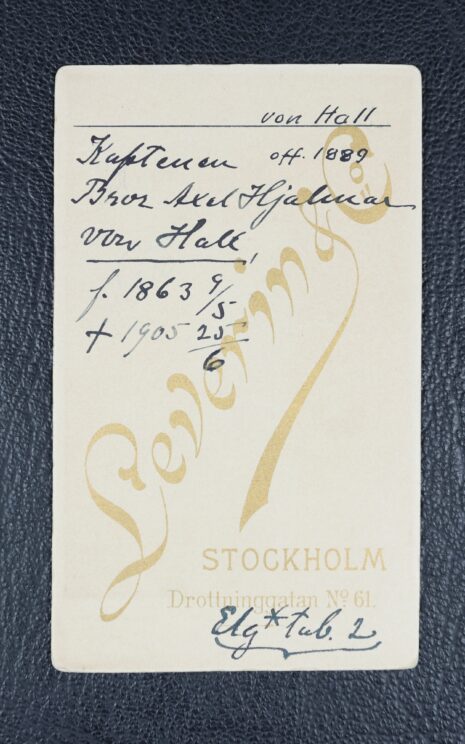 von Hall
Kaptenen off. 1889
Bror Axel Hjalmar
von Hall,
f. 1863 9/5
† 1905 25/6
Leverin & Co
STOCKHOLM
Drottninggatan No 61.
Elg* tab. 2